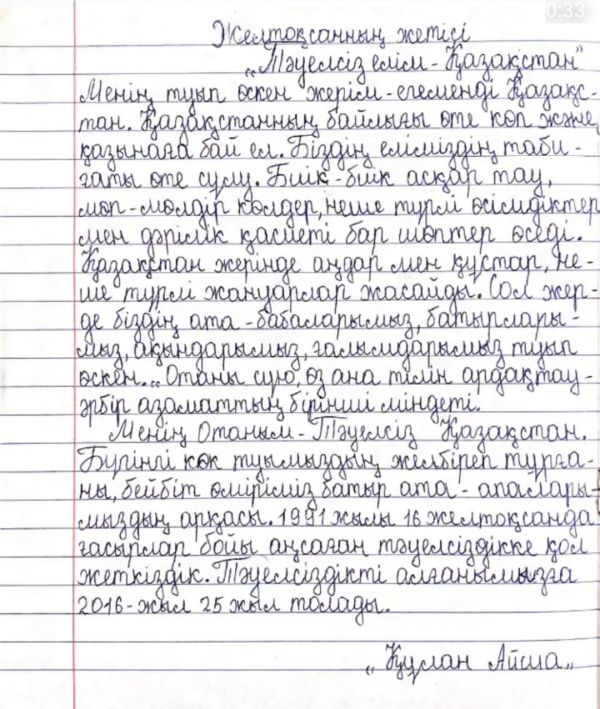 0:33
Желтоқсанның жетісі
„Тәуелсіз елім - Қазақстан"
Менің туып өскен жерім - егеменді Қазақс-
тан. Қазақстанның байлығы өте көп және,
қазынаға бай ел. Біздің еліміздің таби-
ғаты өте сұлу. Биік - биік асқар тау,
мөп - мөлдір көлдер, неше түрлі өсімдіктер
мен дәрілік қасиеті бар шөптер өседі.
Қазақстан жерінде аңдар мен құстар, не-
ше түрлі жануарлар жасайды. Сол жер-
де біздің ата - бабаларымыз, батырлары-
мыз, ақындарымыз, ғалымдарымыз туып
өскен... Отаны сүю, өз ана тілін ардақтау -
әрбір азаматтың бірінші міндеті.
Менің Отаным - Тәуелсіз Қазақстан.
Бүгінгі көк туымыздың желбіреп тұрға-
ны, бейбіт өміріміз батыр ата - апалары-
мыздың арқасы. 1991 жылы 16 желтоқсанда
ғасырлар бойы аңсаған тәуелсіздікке қол
жеткіздік. Тәуелсіздікті алғанымызға
2016 - жыл 25 жыл толады.
„Құлан Айша„